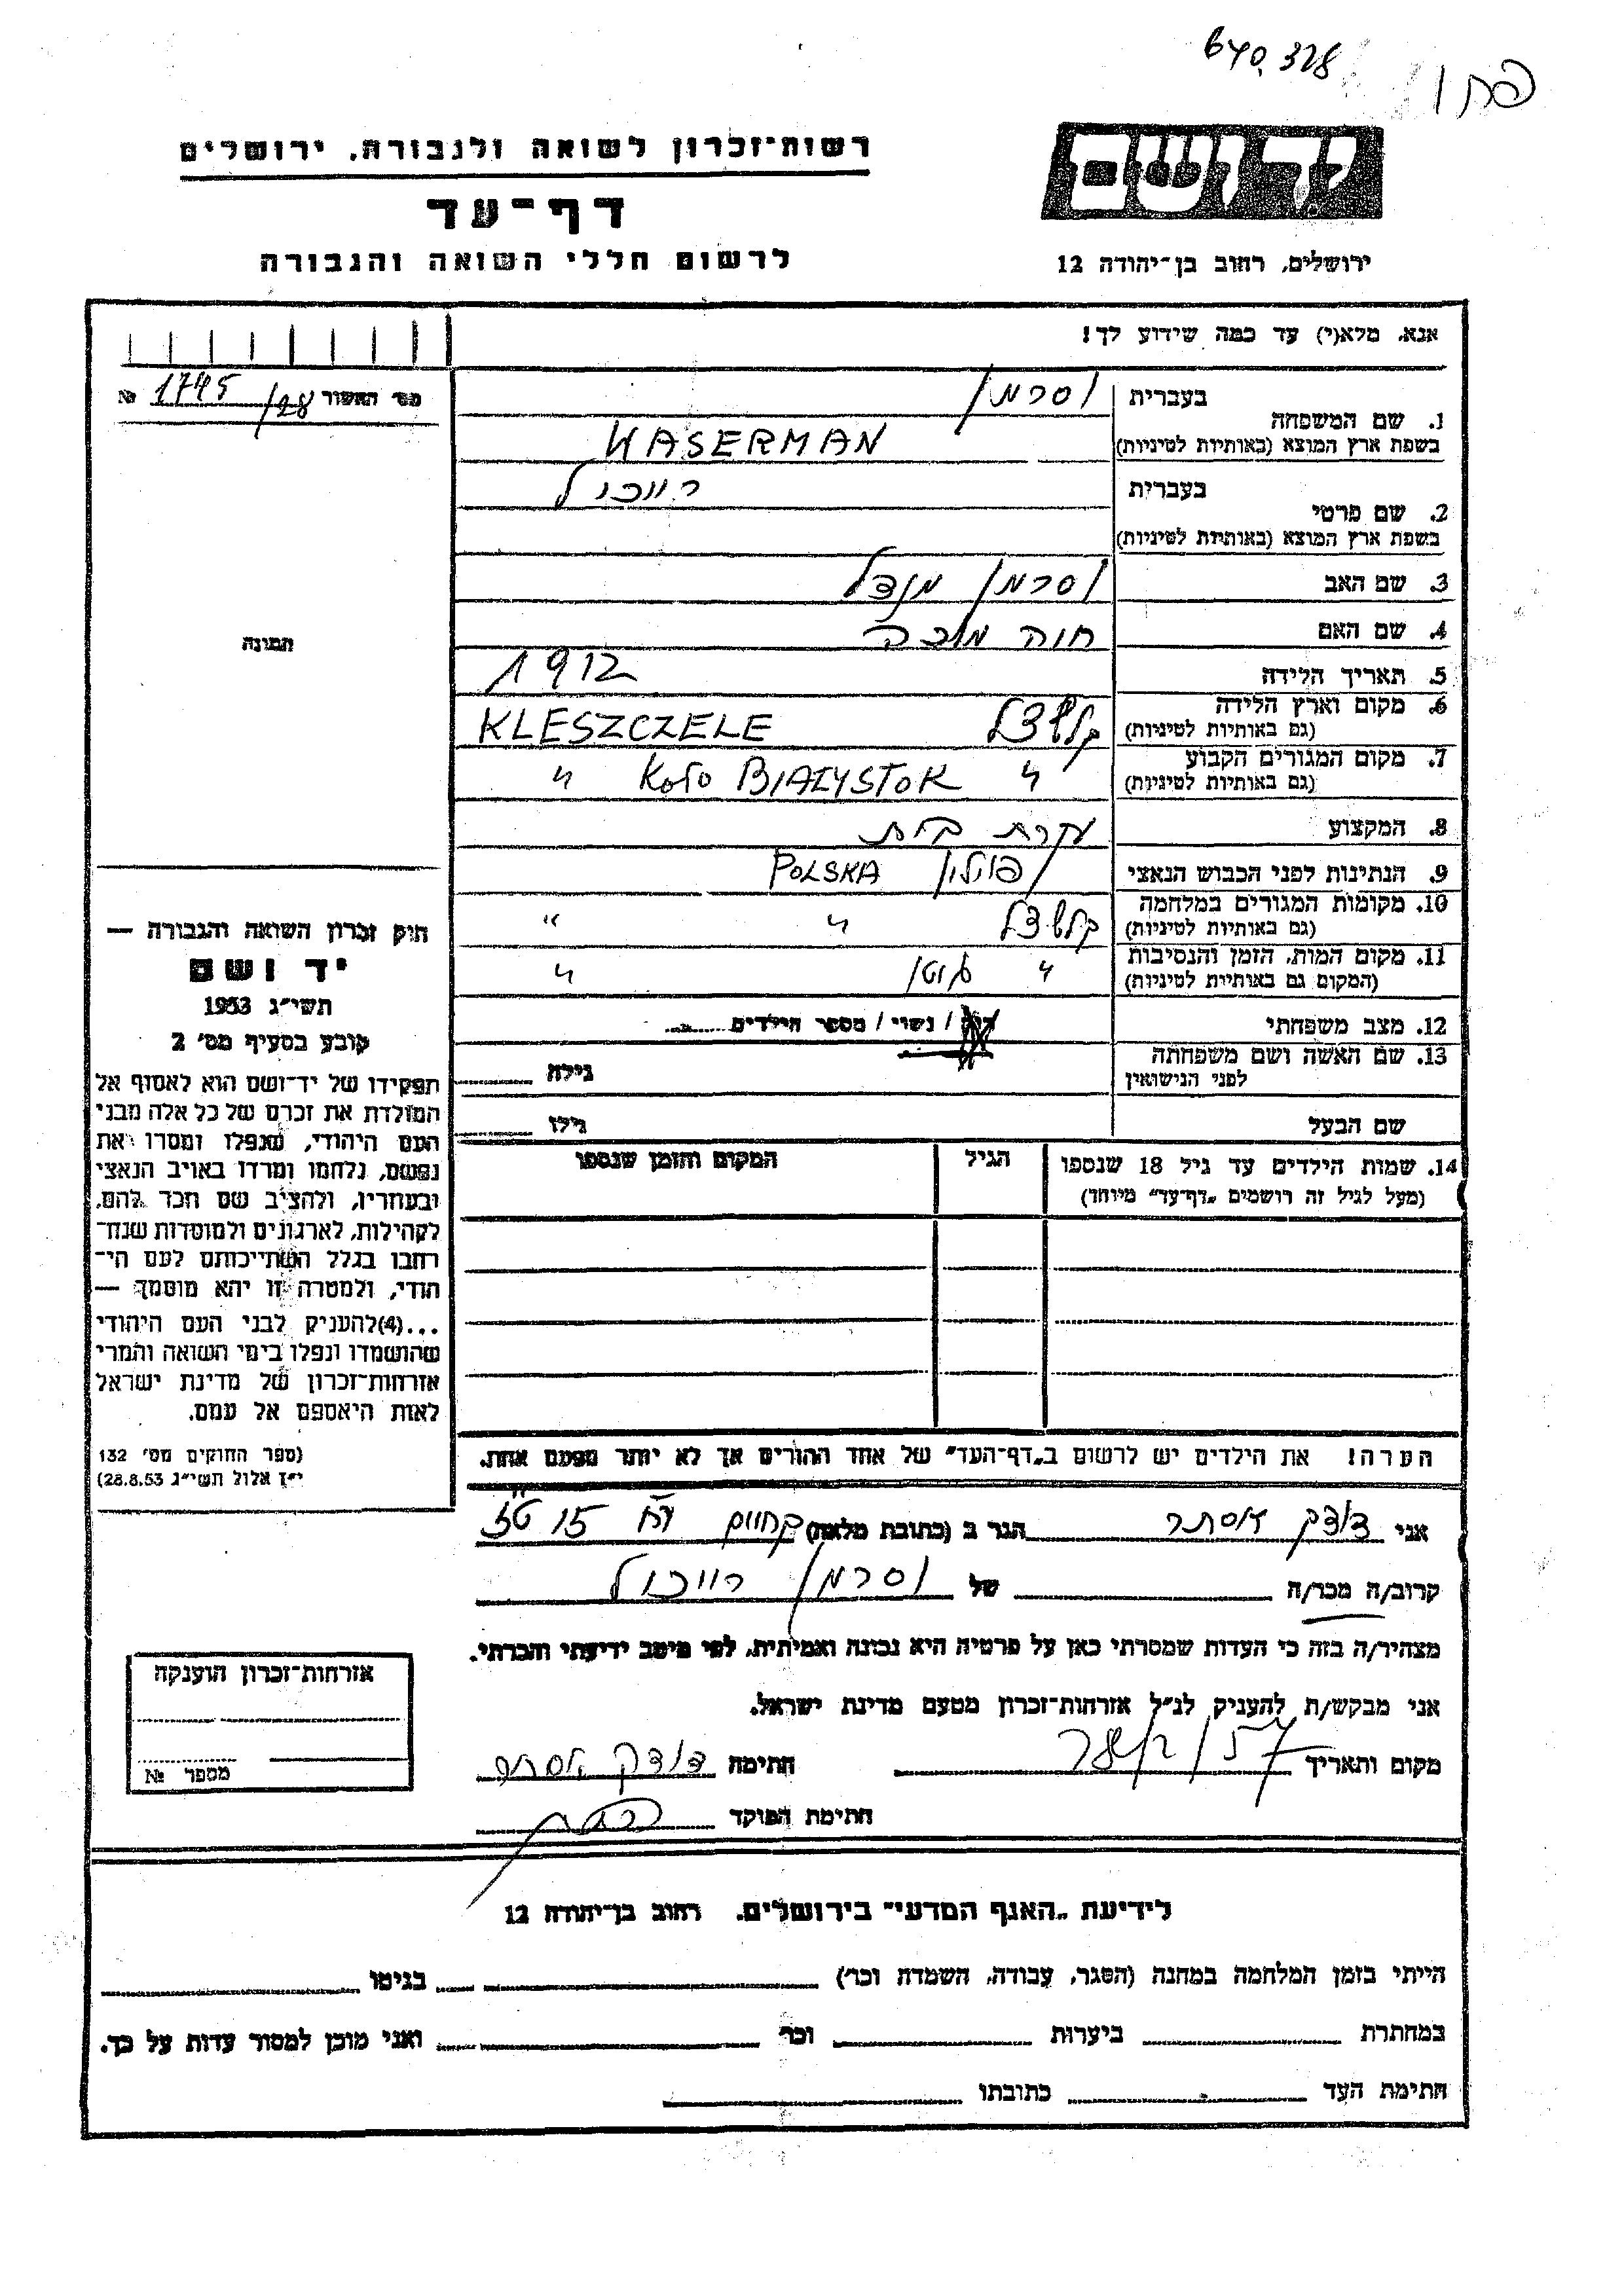 640,328
רשות־זכרון לשואה ולגבורה, ירושלים
דף־עד
לרשום חללי השואה והגבורה
יד ושם
ירושלים, רחוב בן־יהודה 12
אנא, מלא(י) עד כמה שידוע לך!
№ 1745/28
בעברית וסרמן
1. שם המשפחה
בשפת ארץ המוצא (באותיות לטיניות) WASERMAN
בעברית
2. שם פרטי
בשפת ארץ המוצא (באותיות לטיניות)
3. שם האב וסרמן מנדל
4. שם האם חוה
5. תאריך הלידה 1912
6. מקום וארץ הלידה
(גם באותיות לטיניות) קלשצל KLESZCZELE
7. מקום המגורים הקבוע
(גם באותיות לטיניות) " KOŁO BIAŁYSTOK "
8. המקצוע עקרת בית
9. הנתינות לפני הכבוש הנאצי פולין POLSKA
10. מקומות המגורים במלחמה
(גם באותיות לטיניות) קלשצל " "
11. מקום המות, הזמן והנסיבות
(המקום גם באותיות לטיניות) " "
12. מצב משפחתי / נשוי / מספר הילדים
13. שם האשה ושם משפחתה
לפני הנישואין גילה
שם הבעל גילו
14. שמות הילדים עד גיל 18 שנספו הגיל המקום והזמן שנספו
(מעל לגיל זה רושמים „דף־עד” מיוחד)
הערה! את הילדים יש לרשום ב„דף־העד” של אחד ההורים אך לא יותר מפעם אחת.
תמונה
חוק זכרון השואה והגבורה —
יד ושם
תשי״ג 1953
קובע בסעיף מס׳ 2
תפקידו של יד־ושם הוא לאסוף אל
המולדת את זכרם של כל אלה מבני
העם היהודי, שנפלו ומסרו את
נפשם, נלחמו ומרדו באויב הנאצי
ובעוזריו, ולהציב שם וזכר להם,
לקהילות, לארגונים ולמוסדות שנח־
רבו בגלל השתייכותם לעם הי־
הודי, ולמטרה זו יהא מוסמך —
...(4)להעניק לבני העם היהודי
שהושמדו ונפלו בימי השואה והמרי
אזרחות־זכרון של מדינת ישראל
לאות היאספם אל עמם.
(ספר החוקים מס׳ 132
י״ז אלול תשי״ג 28.8.53)
אני אסתר הגר ב (כתובת מלאה) 15
קרוב/ה מכר/ה של וסרמן
מצהיר/ה בזה כי העדות שמסרתי כאן על פרטיה היא נכונה ואמיתית, לפי מיטב ידיעתי והכרתי.
אני מבקש/ת להעניק לנ״ל אזרחות־זכרון מטעם מדינת ישראל.
מקום ותאריך חתימה אסתר
חתימת הפוקד
אזרחות־זכרון הוענקה
מספר №
לידיעת „האגף המדעי” בירושלים, רחוב בן־יהודה 12
הייתי בזמן המלחמה במחנה (הסגר, עבודה, השמדה וכו׳) בגיטו
במחתרת ביערות וכו׳ ואני מוכן למסור עדות על כך.
חתימת העד כתובתו